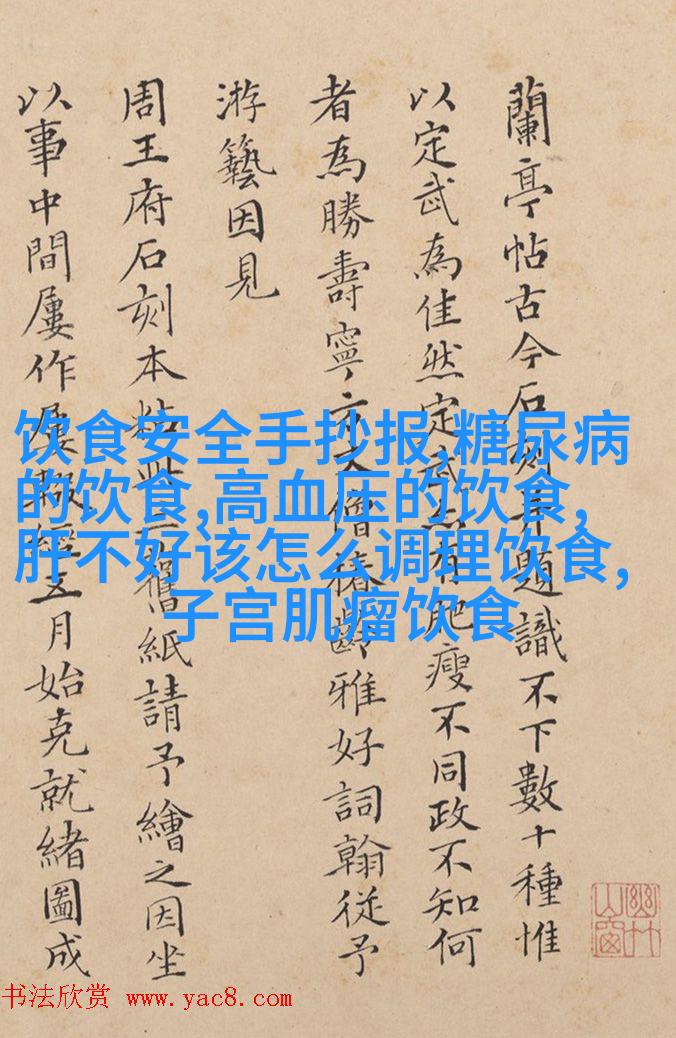 蘭亭帖古今石刻并題識不下數十種惟
以定武為佳然定武亦有肥瘦不同政不知何
者為勝壽寧方丈僧椿齡雅好詞翰從予
游藝因見
周王府石刻本粘此舊紙請予繪之因坐
以事中間屢作屢輟經五月始克就緒圖成
饮食安全手抄报,糖尿病
的饮食,高血压的饮食,
肝不好该怎么调理饮食,
子宫肌瘤饮食
幽竹山窗
书法欣赏 www.yac8.com